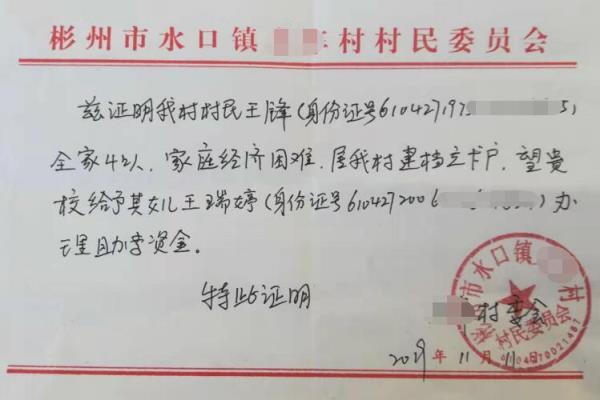 彬州市水口镇 村村民委员会
兹证明我村村民王锋(身份证号610427197 5)
全家4口人,家庭经济困难,属我村建档立卡户,望贵
校给予其女儿王瑞婷(身份证号6104272006 )办
理助学资金。
特此证明
村委会
2019年11月11日
市水口镇 村
村民委员会